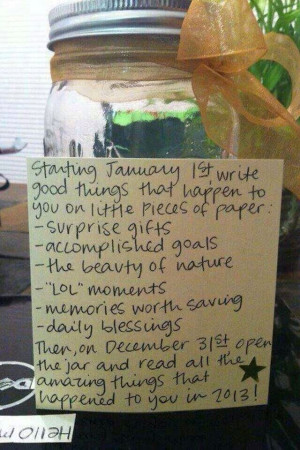 Starting January 1st write
good things that happen to
you on little pieces of paper:
- surprise gifts
- accomplished goals
- the beauty of nature
- "LOL" moments
- memories worth saving
- daily blessings
Then, on December 31st open
the jar and read all the
amazing things that
happened to you in 2013!
Hello